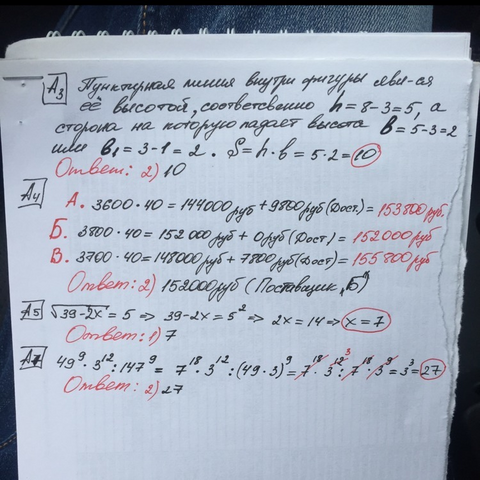 А3 Пунктирная линия внутри фигуры явл-ся
её высотой, соответственно h = 8-3=5, а
сторона на которую падает высота b = 5-3=2
или b₁ = 3-1 = 2. S = h · b = 5 · 2 = 10
Ответ: 2) 10
А4 А. 3600 · 40 = 144000 руб + 9800 руб (Дост.) = 153800 руб.
Б. 3800 · 40 = 152 000 руб + 0 руб (Дост) = 152000 руб
В. 3700 · 40 = 148000 руб + 7800 руб (Дост) = 155800 руб
Ответ: 2) 152000 руб (Поставщик „Б“)
А5 √39-2x = 5 => 39-2x = 5² => 2x = 14 => x = 7
Ответ: 1) 7
А7 49⁹ · 3¹² : 147⁹ = 7¹⁸ · 3¹² : (49 · 3)⁹ = 7¹⁸ · 3¹² ³ : 7¹⁸ · 3⁹ = 3³ = 27
Ответ: 2) 27